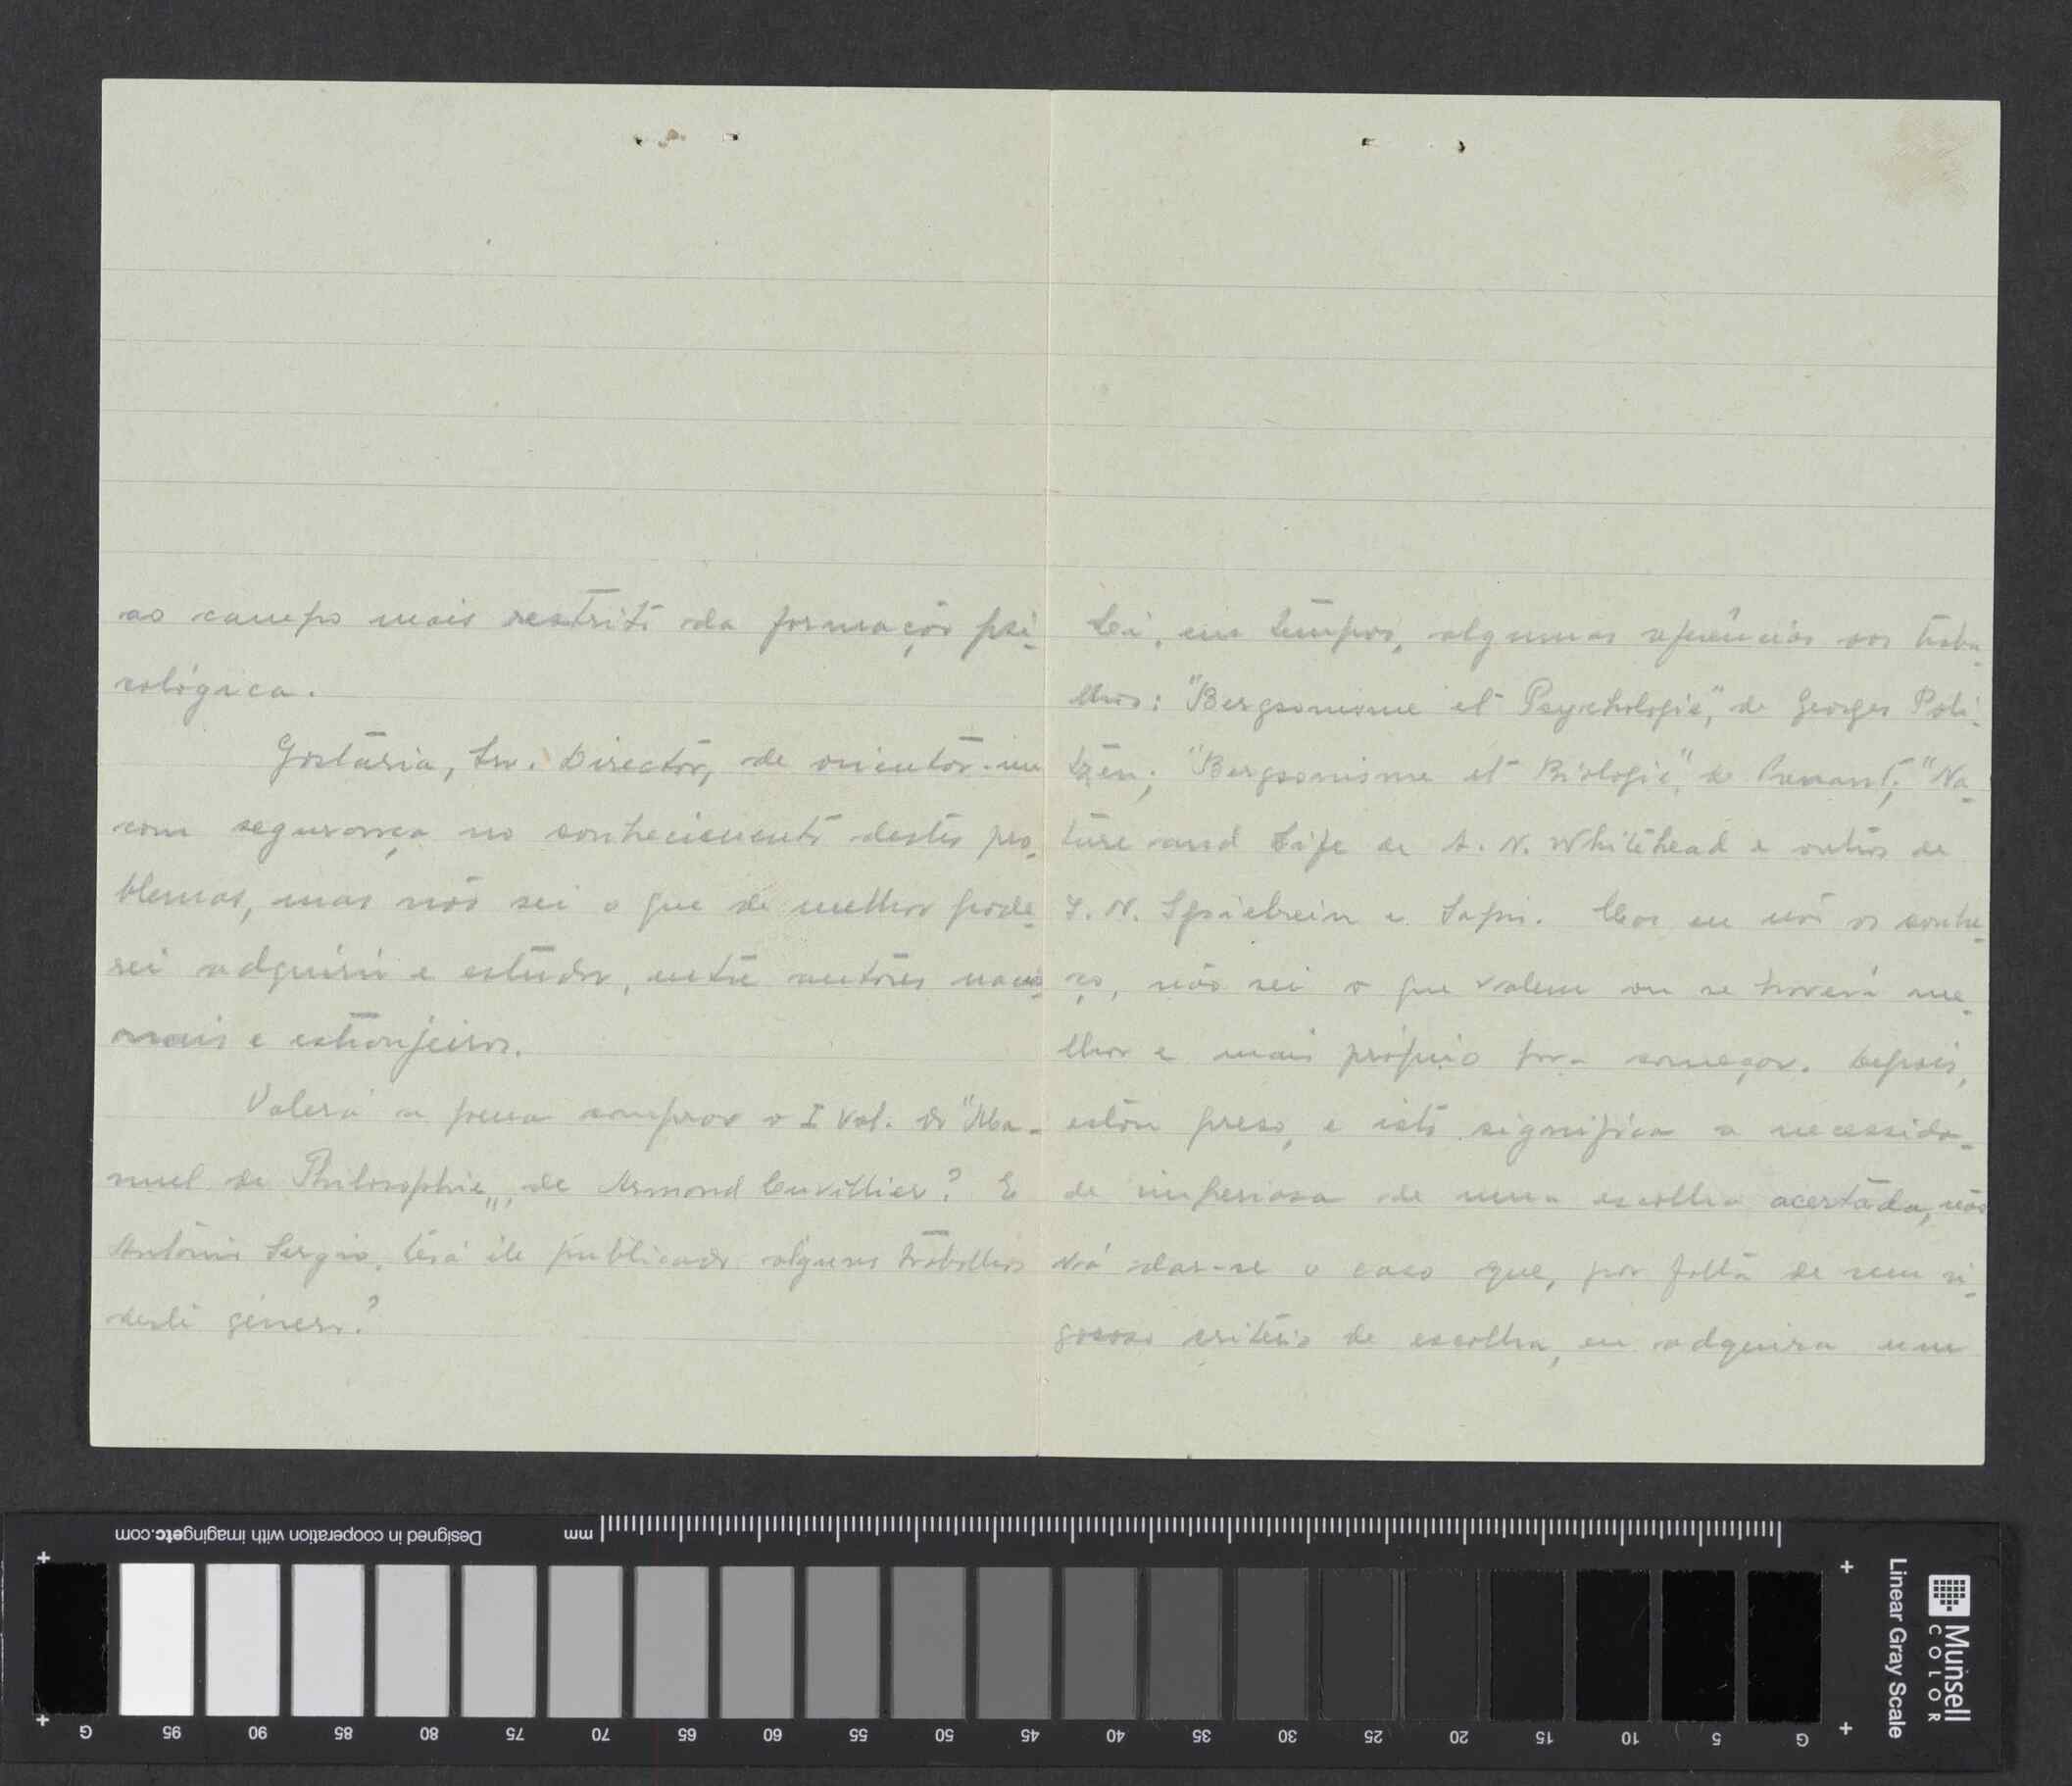 ao campo mais restrito da formação psi-
cológica.
Gostaria, Snr. Director, de orientar-me
com segurança no conhecimento destes pro-
blemas, mas não sei o que de melhor pode-
rei adquirir e estudar, entre autores nacio-
nais e estranjeiros.
Valerá a pena comprar o I Vol. do "Ma-
nuel de Philosophie", de Armand Cuvillier? E
António Sergio, terá êle publicado alguns trabalhos
deste género?
Li, em tempos, algumas referências aos traba-
lhos: "Bergsonisme et Psychologie", de Georges Poli-
tzen; "Bergsonisme et Biologie" de Prenant; "Na-
ture and Life de A. N. Whitehead e outros de
I. N. Spielrein e Sapir. Mas eu não os conhe-
ço, não sei o que valem ou se haverá me-
lhor e mais próprio para começar. Depois,
estou preso, e isto significa a necessida-
de imperiosa de uma escolha acertada, não
vá dar-se o caso que, por falta de um ri-
goroso critério de escolha, eu adquira um
Designed in cooperation with imagingetc.com
mm
G 95 90 85 80 75 70 65 60 55 50 45 40 35 30 25 20 15 10 5 G
Linear Gray Scale
Munsell
COLOR